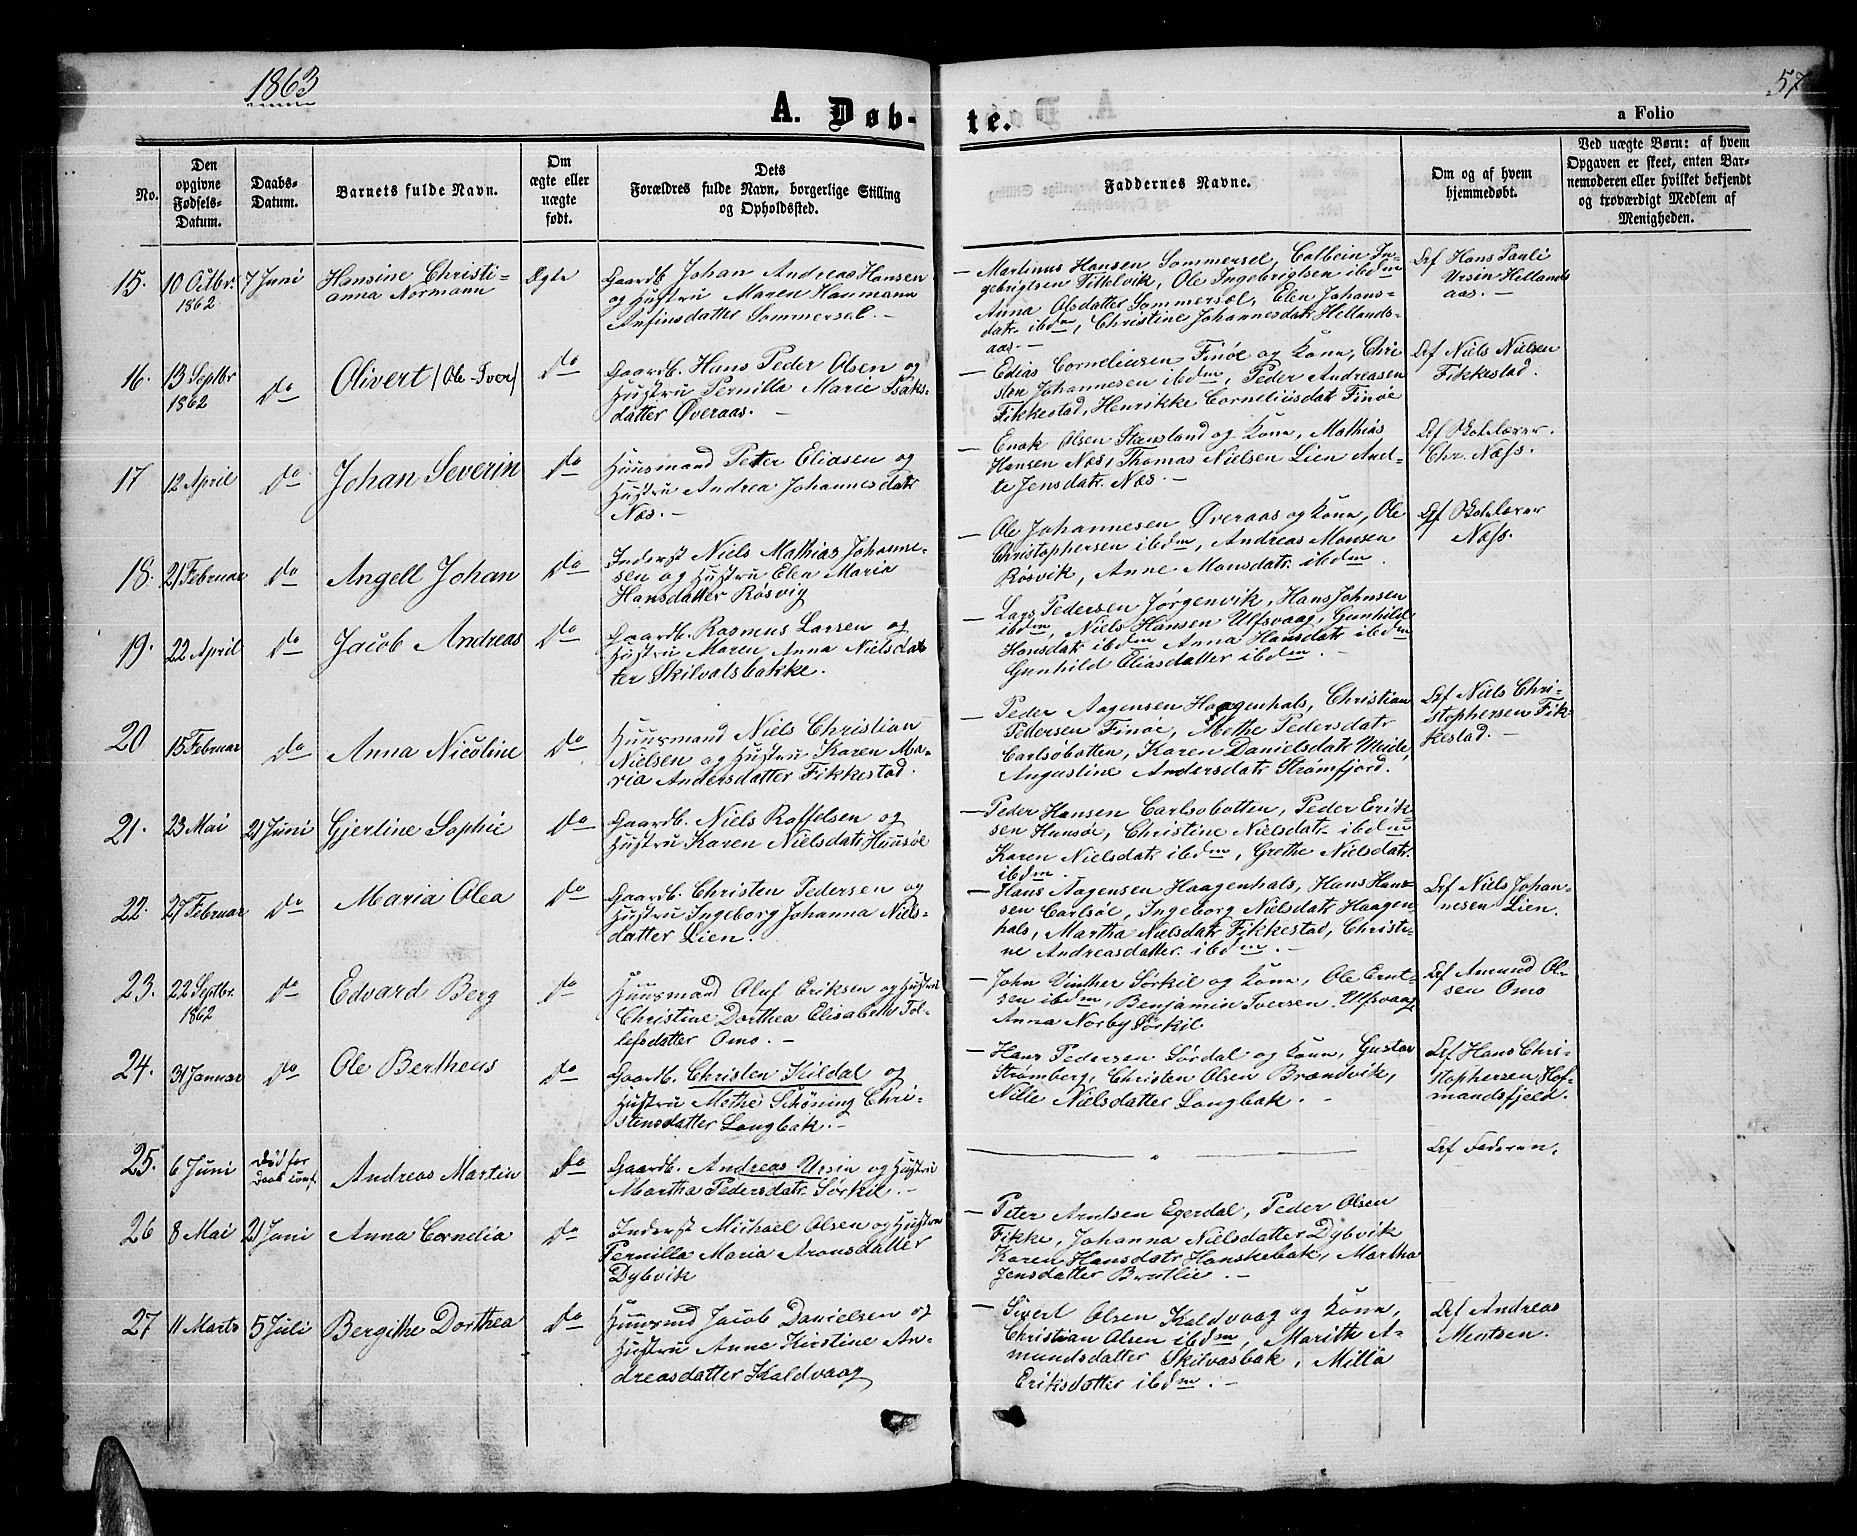 1863
57
A. Døb-
te.
a Folio
No.
Den
opgivne
Fødsels-
Datum.
Daabs-
Datum.
Barnets fulde Navn.
Om
ægte eller
uægte
født.
Dets
Forældres fulde Navn, borgerlige Stilling
og Opholdssted.
Faddernes Navne.
Om og af hvem
hjemmedøbt.
Ved uægte Børn: af hvem
Opgaven er skeet, enten Bar-
nemoderen eller hvilket bekjendt
og troværdigt Medlem af
Menigheden.
15.
10 Octbr.
1862
7 Juni
Hansine Christi-
anna Normann
Ægte
Gaardb. Johan Andreas Hansen
og Hustru Maren Haumann
Anfinsdatter Sommersel. -
- Martinus Hansen Sommersel, Colbein In-
gebrigtsen Fikkelvik, Ole Ingebrigtsen ibdm
Anna Olsdatter Sommersel, Elen Johans-
datr ibdm, Christine Johannesdatr Hellands-
aas. -
Af Hans Pauli
Ursin Hellands
aas. -
16.
13 Septbr
1862
do
Olivert / Ole-Iver /
do
Gaardb. Hans Peder Olsen og
Hustru Pernille Marie Isaks-
datter Øveraas. -
- Edias Corneliusen Finøe og Kone, Chri-
sten Johannesen ibdm, Peder Andreasen
Fikkestad, Henrikke Corneliusdatr Finøe
Af Niels Nielsen
Fikkestad.
17
12 April
do
Johan Severin
do
Huusmand Peter Eliasen og
Hustru Andrea Johannesdatr
Næs. -
- Enok Olsen Stensland og Kone, Mathias
Hansen Næs, Thomas Nielsen Lien And-
te Jensdatr. Næs. -
Af Skolelærer
Chr. Næss.
18.
21 Februar
do
Angell Johan
do
Inderst Niels Mathias Johanne-
sen og Hustru Elen Maria
Hansdatter Røsvig
- Ole Johannesen Øveraas og Kone, Ole
Christophersen ibdm, Andreas Monsen
Røsvik, Anne Monsdatr ibdm.
Af Skolelærer
Næss.
19.
22 April
do
Jacob Andreas
do
Gaardb. Rasmus Larsen og
Hustru Maren Anna Nielsdat
ter Skilvalsbakke.
- Lars Pedersen Jørgenvik, Hans Johnsen
ibdm, Niels Hansen Ulfsvaag, Gunhild
Hansdatr ibdm Anna Hansdatr ibdm
Gunhild Eliasdatter ibdm. -
20
15 Februar
do
Anna Nicoline
do
Huusmand Niels Christian
Nielsen og Hustru Karen Ma-
ria Andersdatter Fikkestad.
- Peder Aagensen Haagenhals, Christian
Pedersen Finøe, Methe Pedersdatr
Carlsøbotten, Karen Danielsdatr
Augustine Andersdatr Strømfjord.
Af Niels Chri-
stophersen Fik-
kestad. -
21.
23 Mai
21 Juni
Gjertine Sophie
do
Gaardb. Niels Roffelsen og
Hustru Karen Nielsdatr Huusøe
- Peder Hansen Carlsøbotten, Peder Erik-
sen Hunsøe, Christine Nielsdatr ibdm
Karen Nielsdatr ibdm, Grethe Nielsdatr.
ibdm.
22.
27 Februar
do
Maria Olea
do
Gaardb. Christen Pedersen og
Hustru Ingeborg Johanna Niels-
datter Lien.
- Hans Aagensen Haagenhals, Hans Han-
sen Carlsøe, Ingeborg Nielsdatr Haagen-
hals, Martha Nielsdatr Fikkestad, Christi-
ne Andreasdatter ibdm. -
Af Niels Johan-
nesen Lien.
23.
22 Septbr.
1862
do
Edvard Berg
do
Huusmand Oluf Eriksen og Hustru
Christine Dorthea Elisabeth Tol-
lefsdatter Omo. -
- John Vinther Sørkil og Kone, Ole Ernt-
sen ibdm, Benjamin Iversen Ulfsvaag
Anna Norby Sørkil.
Af Amund Ol-
sen Omo
24.
31 Januar
do
Ole Bertheus
do
Gaardb. Christen Kildal og
Hustru Methe Schöning Chri-
stensdatter Langbak. -
- Hans Pedersen Sørdal og Kone, Gustav
Strømberg, Christen Olsen Brændvik,
Nille Nielsdatter Langbak. -
Af Hans Chri-
stophersen Hof-
mandsfjeld.
25.
6 Juni
Død før
Daab conf.
Andreas Martin
do
Gaardb. Andreas Ursin og Hustru
Martha Pedersdatr Sørkil. -
"
Af Faderen.
26
8 Mai
21 Juni
Anna Cornelia
do
Inderst Michael Olsen og Hustru
Pernilla Maria Aronsdatter
Dybvik
- Peter Arntsen Egerdal, Peder Olsen
Fikke, Johanna Nielsdatter Dybvik
Karen Hansdatr Hanskebak, Martha
Jensdatter Bratlie. -
27
11 Marts
5 Juli
Bergithe Dorthea
do
Huusmd Jacob Danielsen og
Hustru Anne Kirstine An-
dreasdatter Kaldvaag
- Sivert Olsen Kaldvaag og Kone,
Christian Olsen ibdm, Marith A-
mundsdatter Skilvasbak, Milla
Eriksdatter ibdm. -
Af Andreas
Mentsen.